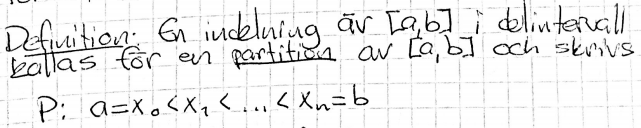 Definition: En indelning av [a,b] i delintervall
kallas för en partition av [a,b] och skrivs
P: a=x₀<x₁<...<xₙ=b